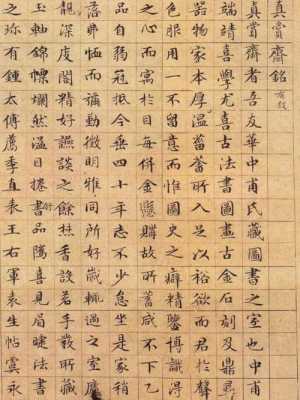 真賞齋銘 有叙
真賞齋者吾友華中甫氏藏圖書之室也中甫
端靖喜學尤喜古法書圖畫古金石刻及鼎彝
器物家本厚温菑畬所入足以裕欲而君於聲
色服用一不留意而惟圖史之癖精鑒博識得
之心而寓於目每併金懸購故所蓄咸不下乙
品自弱冠抵今垂四十年志不少怠坐是家稍
落弗恤而彌勤徵明雅同所好歲輒過之室廬
靚深庋閣精好讌談之餘焫香設茗手發所藏
玉軸錦幖爛然溢目捲舒品隲喜見眉睫法書
之珎有鍾太傅薦季直表王右軍袁生帖虞永